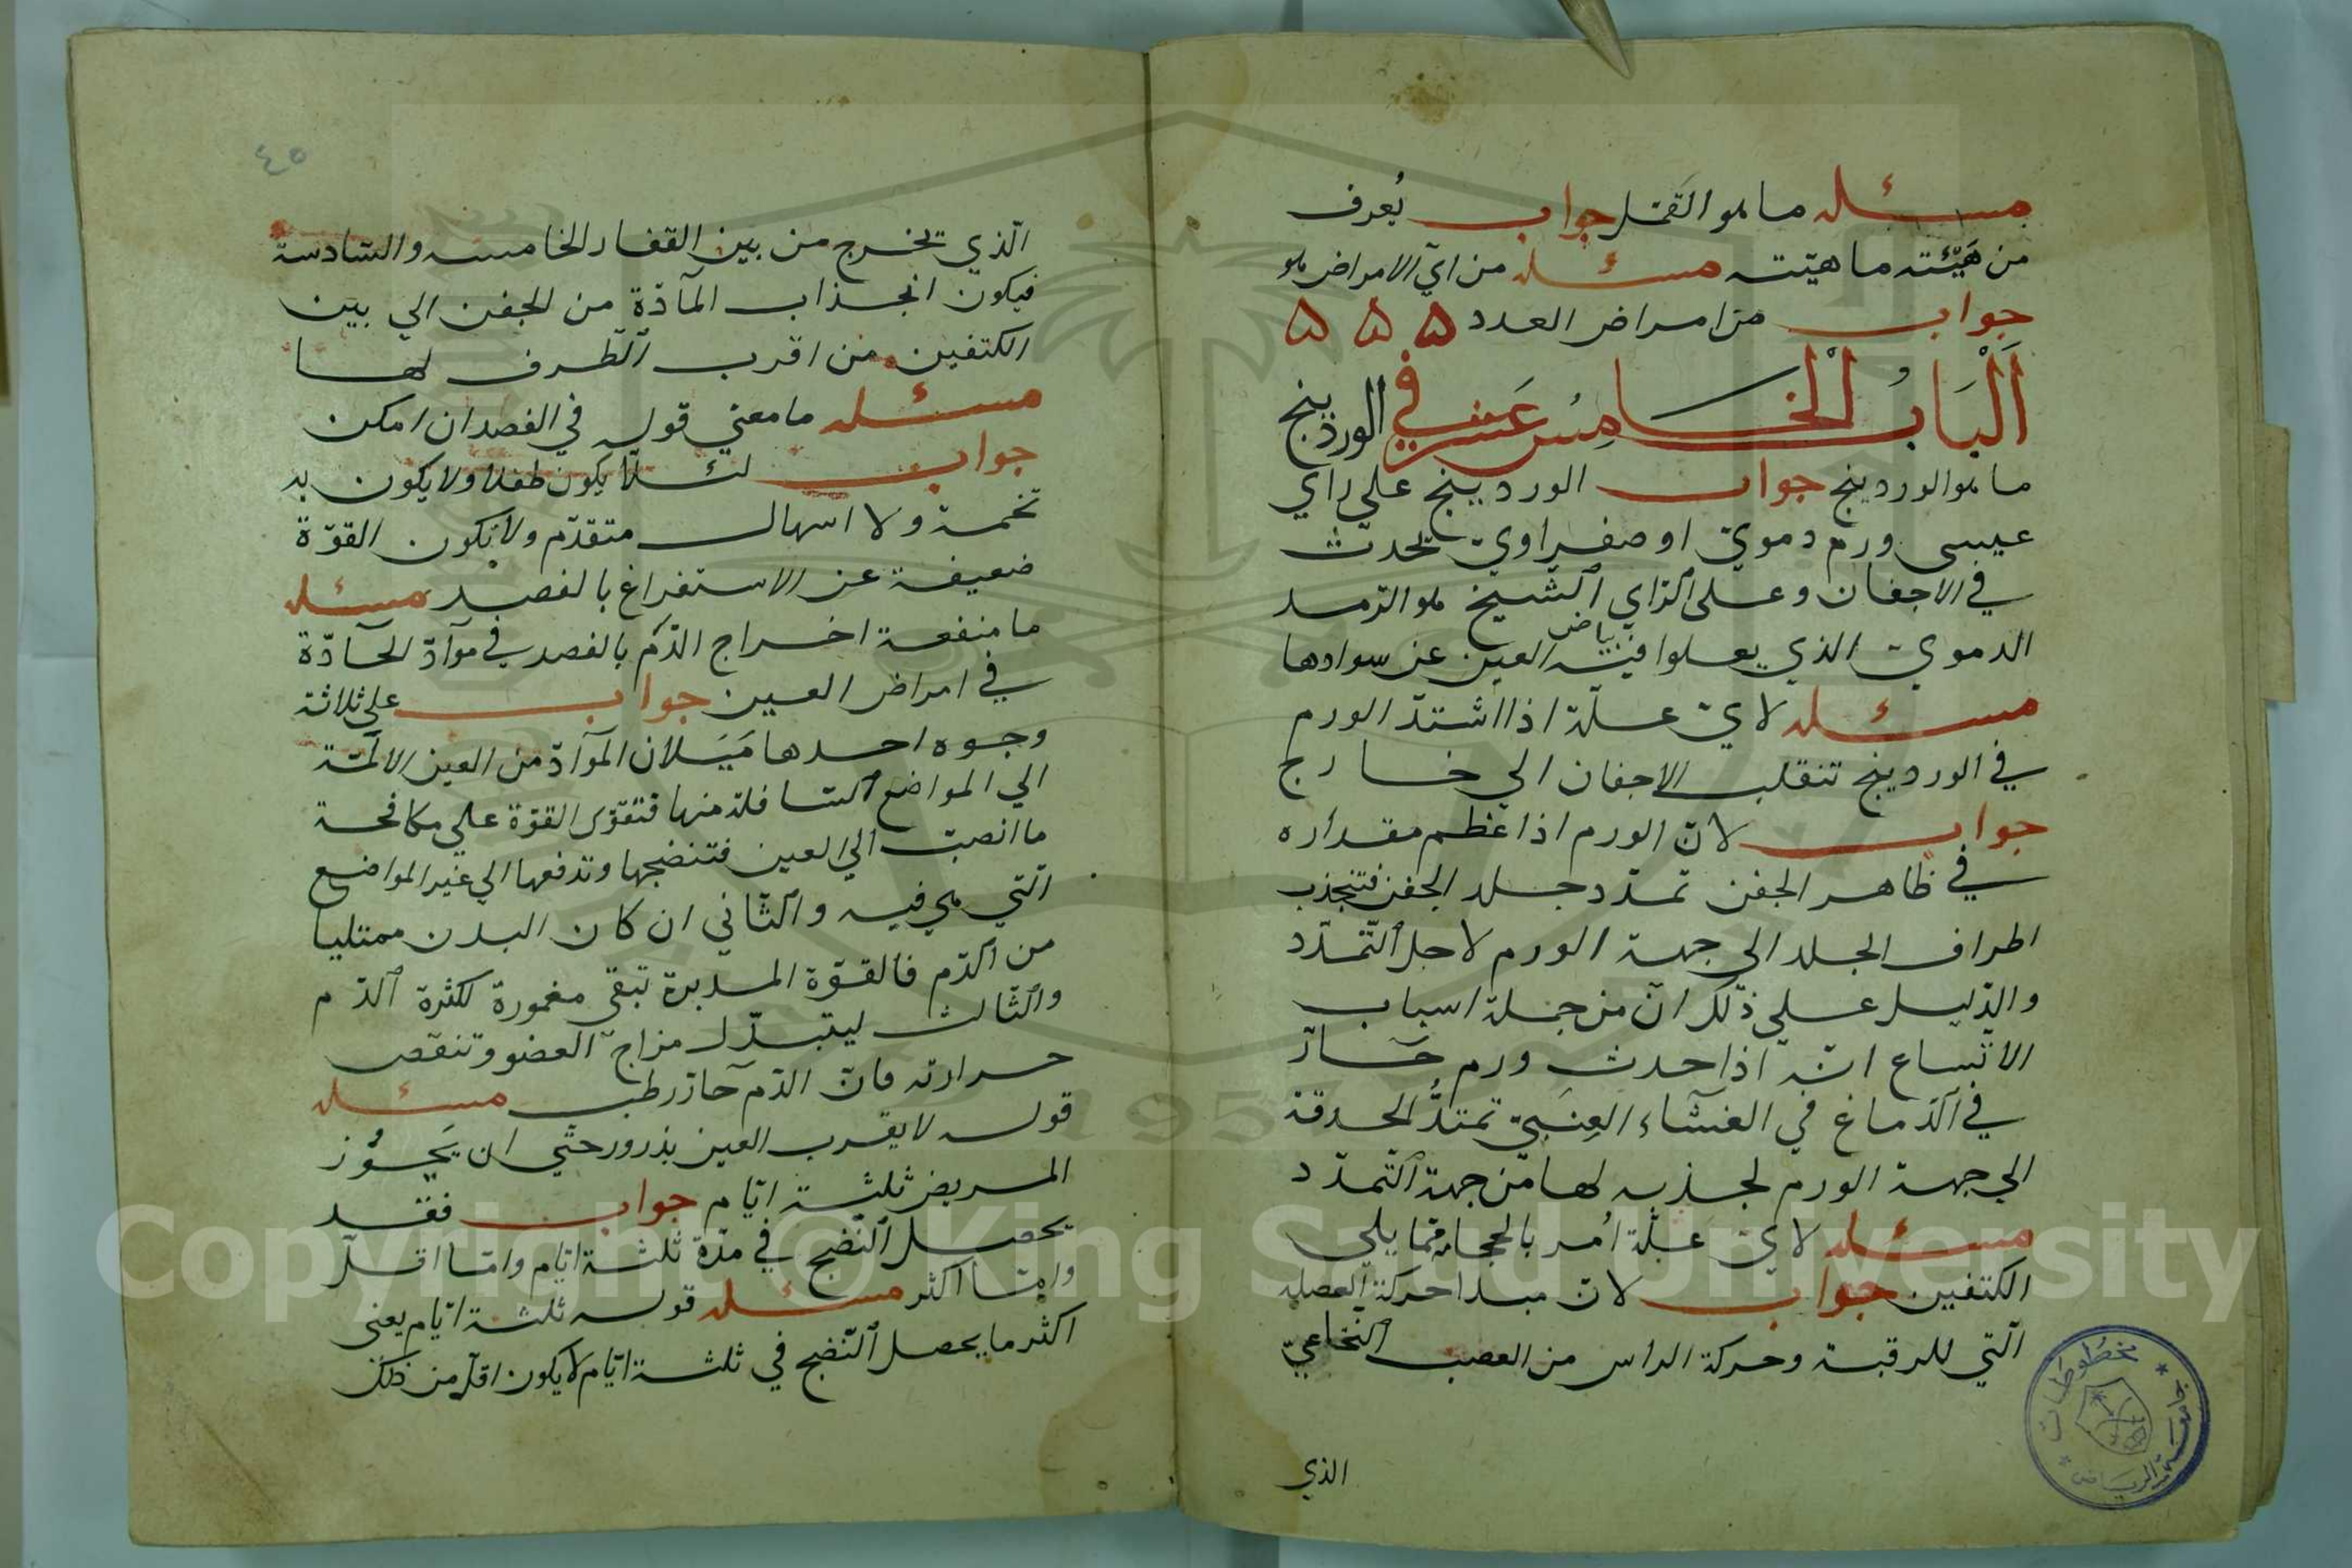 مسئله ما هو القمل جواب يُعرف
من هَيْئته ما هيّته مسئله من اىّ الامراض هو
جواب من امراض العدد ۵ ۵ ۵
اَلْبَابُ الْخامِسُ عَشر في الوردينج
ما هو الوردينج جواب الوردينج على راي
عيسى ورم دمويّ او صفراويّ يحدث
في الاجفان وعلى الرّاي الشّيخ هو الرّمد
الدمويّ الذي يعلوا فيه بياض العين عن سوادها
مسئله لايّ علّة اذا اشتدّ الورم
في الوردينج تنقلب الاجفان الي خارج
جواب لانّ الورم اذا عظم مقداره
في ظاهر الجفن تمدّد جلد الجفن فتنجذب
اطراف الجلد الي جهة الورم لاجل التّمدّد
والدّليل علي ذلك انّ من جملة اسباب
الاتّساع انّه اذا حدث ورم حَارّ
في الدّماغ في الغشاء العِنَبيّ تمتدُّ الحدقة
الي جهة الورم لجذبه لها من جهة التّمدّد
مسئله لايّ عَلّة اُمر بالحجامة ممّا يلي
الكتفين جواب لانّ مبدا حركة العضله
الّتي للرقبة وحركة الراس من العصب النّخاعيّ
الذي
٤٥
الّذي يخرج من بين الفقار الخامسه والسّادسة
فيكون انجذاب المآدّة من الجفن الي بين
الكتفين من اقرب الطّرف لها
مسئله ما معني قوله في الفصد ان امكن
جواب لئلّا يكون طفلا ولا يكون به
تخمة ولا اسهال متقدّم ولا تكون القوّة
ضعيفة عن الاستفراغ بالفصد مسئله
ما منفعة اخراج الدّم بالفصد في موآدّ الحآدّة
في امراض العين جواب علي ثلاثة
وجوه احدها مَيَلان الموآدّ من العين الالمة
الي المواضع السّافلة منها فتقوّى القوّة علي مكافحة
ما انصبّ الي العين فتنضجها وتدفعها الي غير المواضع
الّتي هي فيه والثّاني ان كان البدن ممتليا
من الدّم فالقوّة المدبرة تبقي مغمورة لكثرة الدّم
والثّالث ليتبدّل مزاج العضو وتنقص
حرارته فانّ الدّم حارّ رطب مسئله
قوله لا يقرب العين بذرور حتّي ان يَجُوز
المريض ثلثة ايّام جواب فقد
يحصل النّضج في مدّة ثلثة ايّام وامّا اقلّ
وامّا اكثر مسئله قوله ثلثة ايّام يعنى
اكثر ما يحصل النّضج في ثلثة ايّام لا يكون اقلّ من ذلك
مخطوطات
جامعة الرياض
Copyright © King Saud University